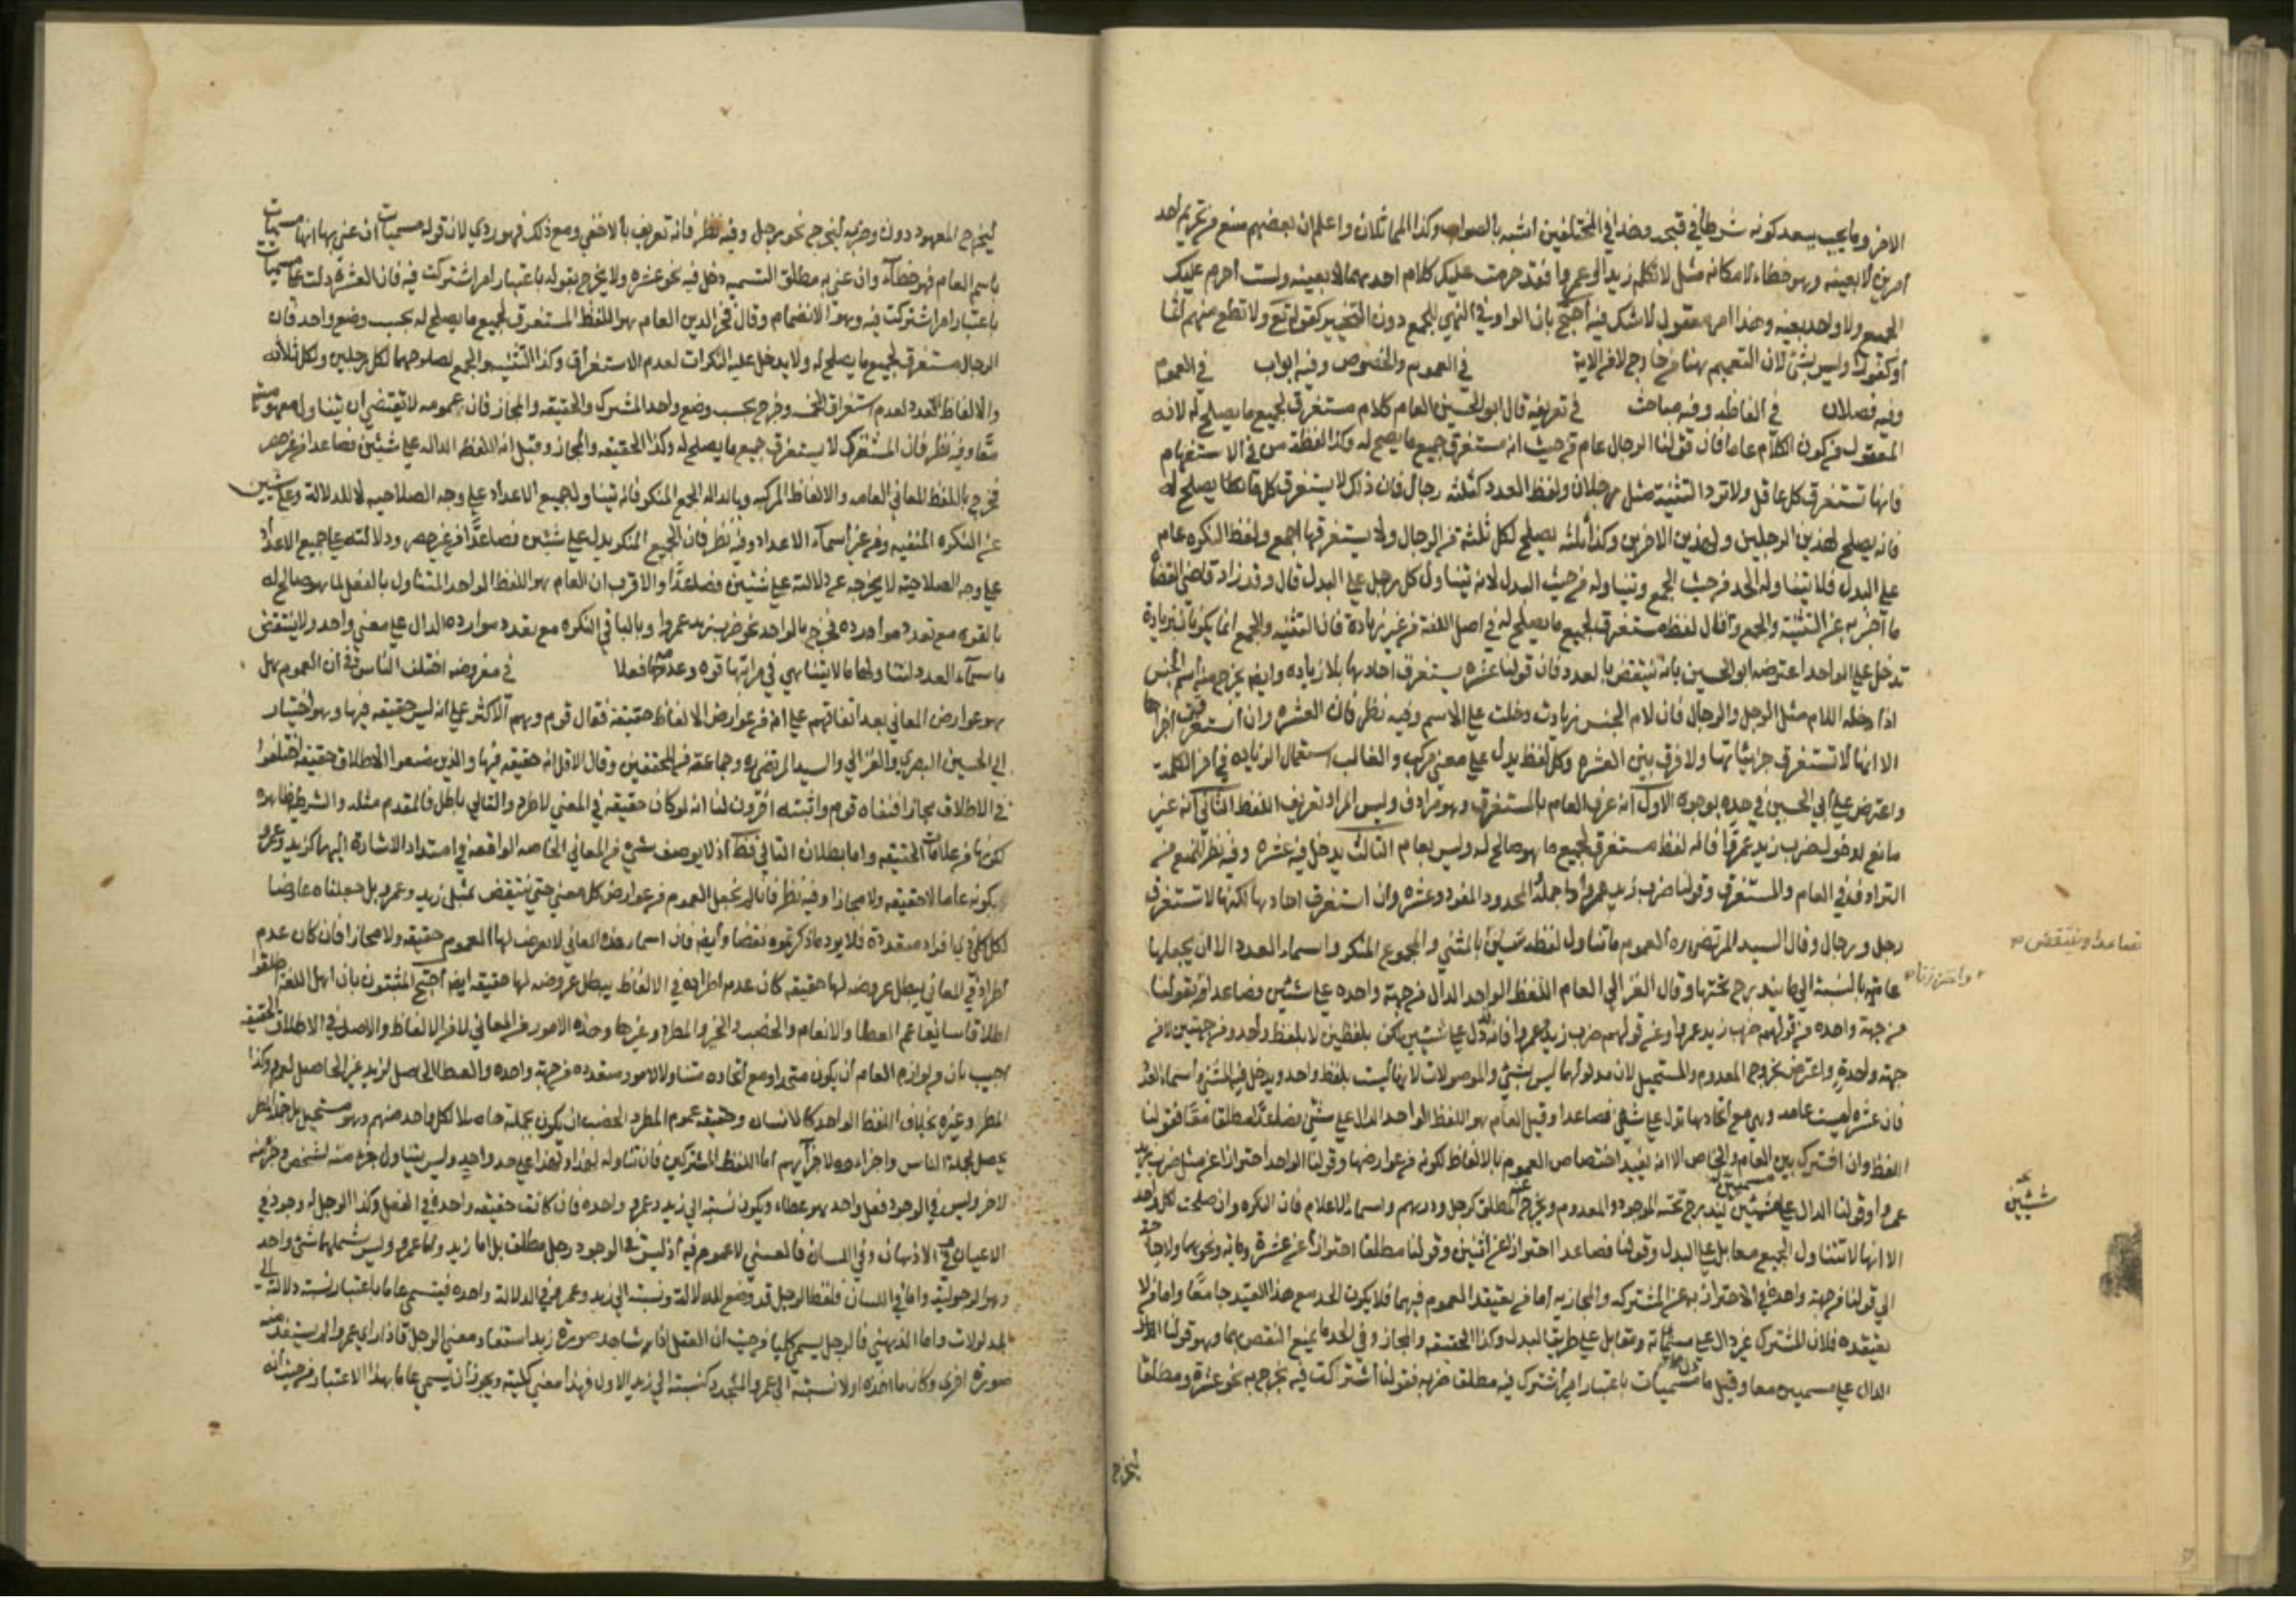 الاخر وما يجب يبعد كونه شرطا في قبحه وهذا في المختلفين اشبه بالصواب وكذا المماثلان واعلم ان بعضهم منع من تحريم احد
امرين لا بعينه وهو خطاء لامكانه مثل لا تكلم زيدا او عمروا فقد حرمت عليك كلام احدهما لا بعينه ولست احرم عليك
الجميع ولا واحد بعينه وهذا امر معقول لا شك فيه احتج بان الواو في النهي للجمع دون التخيير كقوله تع ولا تطع منهم آثما
او كفورا وليس بشئ لان التعميم هنا من خارج لا من الاية في العموم والخصوص وفيه ابواب في العموم
وفيه فصلان في الفاظه وفيه مباحث في تعريفه قال ابو الحسين العام كلام مستغرق لجميع ما يصلح له لانه
المعقول من كون الكلام عاما فان قولنا الرجال عام من حيث انه مستغرق جميع ما يصلح له وكذا لفظة من في الاستفهام
فانها تستغرق كل عاقل ولا ترد التثنية مثل رجلان ولفظ العدد كثلثه رجال فان ذلك لا يستغرق كل ما يصلح له
فانه يصلح لهذين الرجلين ولهذين الاخرين وكذا ثلثه يصلح لكل ثلثة من الرجال ولا يستغرقها اجمع ولفظ النكره عام
على البدل فلا يتناوله الحد من حيث الجمع وتيناوله من حيث البدل لانه تيناول كل رجل على البدل قال وقد زاد قاضي القضاة
ما احترز به عن التثنية والجمع وقال لفظ مستغرق لجميع ما يصلح له في اصل اللغة من غير زيادة فان التثنيه والجمع انما يكونان بزيادة
تدخل على الواحد اعترضه ابو الحسين بانه ينتقض بالعدد فان قولنا عشره يستغرق احادها بلا زياده وايضا يخرج منه اسم الجنس
اذا دخله اللام مثل الرجل والرجال فان لام الجنس زيادت دخلت على الاسم وفيه نظر فان العشره وان استغرقت اجزاها
الا انها لا تستغرق جزئياتها ولا فرق بين العشره وكل لفظ يدل على معنى مركب والغالب استعمال الزياده في اخر الكلمة
واعترض على ابي الحسين في حده بوجوه الاول انه عرف العام بالمستغرق وهو مرادف وليس المراد تعريف اللفظ الثاني انه غير
مانع لدخول ضرب زيد عمروا فانه لفظ مستغرق لجميع ما هو صالح له وليس بعام الثالث يدخل فيه عشره وفيه نظر للمنع من
الترادف في العام والمستغرق وقولنا ضرب زيد عمروا جملة والمحدود المفرد وعشره وان استغرق احادها لكنها لا تستغرق
رجل ورجال وقال السيد المرتضى ره العموم ما تناول لفظه شيئين بالمثنى والمجموع المنكر واسماء العدد الا ان يجعلها
عامة بالنسبة الى ما يندرج تحتها وقال الغزالي العام اللفظ الواحد الدال من جهة واحده على شيئين فصاعدا بقولنا
من جهة واحده من قولهم ضرب زيد عمروا وعن قولهم ضرب زيد عمروا فانه دل على شيئين لكن بلفظين لا بلفظ واحد ومن جهتين لا من
جهة واحدة واعترض بخروج المعدوم والمستحيل لان مدلولهما ليس بشئ والموصولات لانها ليست بلفظ واحد ويدخل فيه المثنى واسماء العدد
فان عشره ليست عامه وهي مع اتحادها تدل على شيئين فصاعدا وقيل العام هو اللفظ الواحد الدال على شيئين فصاعدا مطلقا معا فقولنا
اللفظ وان اشترك بين العام والخاص الا انه يفيد اختصاص العموم بالالفاظ لكونه من عوارضها وقولنا الواحد احترازا عن مثل ضرب زيد
عمروا وقولنا الدال على مسميين ليندرج تحته الموجود والمعدوم ويخرج عنه المطلق كرجل ودرهم واسماء الاعلام فان النكره وان صلحت لكل واحد
الا انها لا تتناول الجميع معا بل على البدل وقولنا فصاعدا احترازا عن اثنين وقولنا مطلقا احترازا عن عشرة ومائة ونحوهما ولا حاجة
الى قولنا من جهة واحدة في الاحتراز به عن المشتركه والمجازيه اما من يعتقد العموم فيهما فلا يكون الحد مع هذا القيد جامعا واما من لا
يعتقده فلان المشترك غير دال على مسمياته معا بل على طريق البدل وكذا الحقيقه والمجاز وفي الحد ما يمنع النقض بهما وهو قولنا اللفظ
الدال على مسميين معا وقيل ما دل على مسميات باعتبار امر اشتركت فيه مطلقا ضربه فقولنا اشتركت فيه يخرج به نحو عشرة ومطلقا
ليخرج
فصاعدا وينتقض
واحترزنا
شيئين
ليخرج المعهود دون وضربه ليخرج نحو رجل وفيه نظر فانه تعريف بالاخفى ومع ذلك فهو ردي لان قوله مسميات ان عنى بها انها مسميات
باسم العام فهو خطاء وان عنى به مطلق التسميه دخل فيه نحو عشره ولا يخرج بقوله باعتبار امر اشتركت فيه فان العشرة دلت على مسميات
باعتبار امر اشتركت فيه وهو الانضمام وقال فخر الدين العام هو اللفظ المستغرق لجميع ما يصلح له بحسب وضع واحد فان
الرجال مستغرق لجميع ما يصلح له ولا يدخل عليه النكرات لعدم الاستغراق وكذا التثنيه والجمع لصلوحهما لكل رجلين ولكل ثلاثه
والالفاظ العدد لعدم استغراق الخمسه وخرج بحسب وضع واحد المشترك والحقيقه والمجاز فان عمومه لا يقتضي ان تيناول مفهوميه
معا وفيه نظر فان المشترك لا يستغرق جميع ما يصلح له وكذا الحقيقه والمجاز وقيل انه اللفظه الداله على شيئين فصاعدا من غير حصر
فخرج باللفظ المعاني العامه والالفاظ المركبه وبالداله الجمع المنكر فانه تيناول جميع الاعداد على وجه الصلاحيه لا للدلالة وعلى شيئين
عن النكره المنفيه ومن غير اسماء الاعداد وفيه نظر فان الجمع المنكر يدل على شيئين فصاعدا من غير حصر ودلالته على جميع الاعداد
على وجه الصلاحيه لا يخرجه عن دلالته على شيئين فصاعدا والاقرب ان العام هو اللفظ الواحد المتناول بالفعل لما هو صالح له
بالقوه مع تعدد موارده فخرج بالواحد نحو ضرب زيد عمروا وبالباقي النكره مع تعدد موارده الدال على معنى واحد ولا ينتقض
باسماء العدد لتناولها ما لا يتناهى في مراتبها قوه وعدمها فعلا في معروضه اختلف الناس في ان العموم هل
هو عوارض المعاني بعد اتفاقهم على انه من عوارض الالفاظ حقيقة فقال قوم وهم الاكثر على انه ليس حقيقه فيها وهو اختيار
ابي الحسين البصري والغزالي والسيد المرتضى ره وجماعة من المحققين وقال الاقل انه حقيقه فيها والذين منعوا الاطلاق حقيقه اختلفوا
في الاطلاق مجازا فنفاه قوم واثبته اخرون لنا انه لو كان حقيقه في المعنى لاطرد والتالي باطل فالمقدم مثله والشرطيه ظاهره
لكونها من علامات الحقيقه واما بطلان التالي فظ اذ لا يوصف شئ من المعاني الخاصه الواقعه في امتداد الاشارة اليها كزيد وعمرو
بكونه عاما لا حقيقه ولا مجازا وفيه نظر فانا لم نجعل العموم من عوارض كل معنى حتى ينتقض بمثل زيد وعمرو بل جعلناه عارضا
لكل كلي لها افراد متعددة فلا يرد ما ذكرتموه نقضا وايضا فان اسماء هذه المعاني لا تعرض لها العموم حقيقه ولا مجازا فان كان عدم
اطراده في المعاني يبطل عروضه لها حقيقه كان عدم اطراده في الالفاظ يبطل عروضه لها حقيقه ايضا احتج المثبتون بان اهل اللغه اطلقوا
اطلاقا سايغا عم العطا والانعام والخصب والخير والمطر وغيرها وهذه الامور من المعاني لا من الالفاظ والاصل في الاطلاق الحقيقه
اجيب بان من لوازم العام ان يكون متحدا ومع اتحاده متناولا لامور متعدده من جهة واحده والعطا الحاصل لزيد غير الحاصل لعمرو وكذا
المطر وغيره بخلاف اللفظ الواحد كالانسان وحقيقه عموم المطر والخصب ان يكون بجملته حاصلا لكل واحد منهم وهو مستحيل بل جملة المطر
يحصل لجملة الناس واجزاءه لاجزائهم اما اللفظ المشترك فان تناوله لهذا وتناوله لهذا على حد واحد وليس يتناول جزء منه لشخص وجزء منه
لاخر وليس في الوجود فعل واحد هو عطاء ويكون نسبته الى زيد وعمرو واحده فان كانت حقيقه واحده في الفعل وكذا الرجل له وجود في
الاعيان وفي الاذهان وفي اللسان فالعيني لا عموم فيه اذ ليس في الوجود رجل مطلق بل اما زيد واما عمرو وليس شملهما شئ واحد
وهو الرجوليه واما في اللسان فلفظ الرجل قد وضع للدلالة ونسبته الى زيد وعمرو في الدلالة واحده فيسمى عاما باعتبار نسبة دلالة الى
المدلولات واما الذهني فالرجل يسمى كليا من حيث ان العقل اذا شاهد صورة زيد استفاد معنى الرجل فاذا راى عمروا لم يستفد منه
صورة اخرى وكان ما اخذه اولا نسبته الى عمرو المتجدد كنسبته الى زيد الاول فهذا معنى كليته ويجوز ان يسمى عاما بهذا الاعتبار من حيث انه